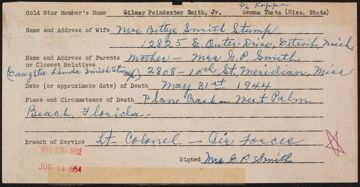 Pi Kappa
Gold Star Member's Name Gilmer Poindexter Smith, Jr. Gamma Beta (Miss. State)
Name and Address of Wife Mrs Bettye Smith Stump
12825 E Outer Drive, Detroit, Mich
Name and Address of Parents Mother - Mrs G. P. Smith
or Closest Relatives
(Daughter Linda Smith Stump) 2808-10th St, Meridian, Miss
Date (or approximate date) of Death May 31st 1944
Place and Circumstance of Death Plane Crash - West Palm
Beach, Florida
Branch of Service Lt. Colonel - Air Forces
JUN 14 1954
Signed Mrs G. P. Smith